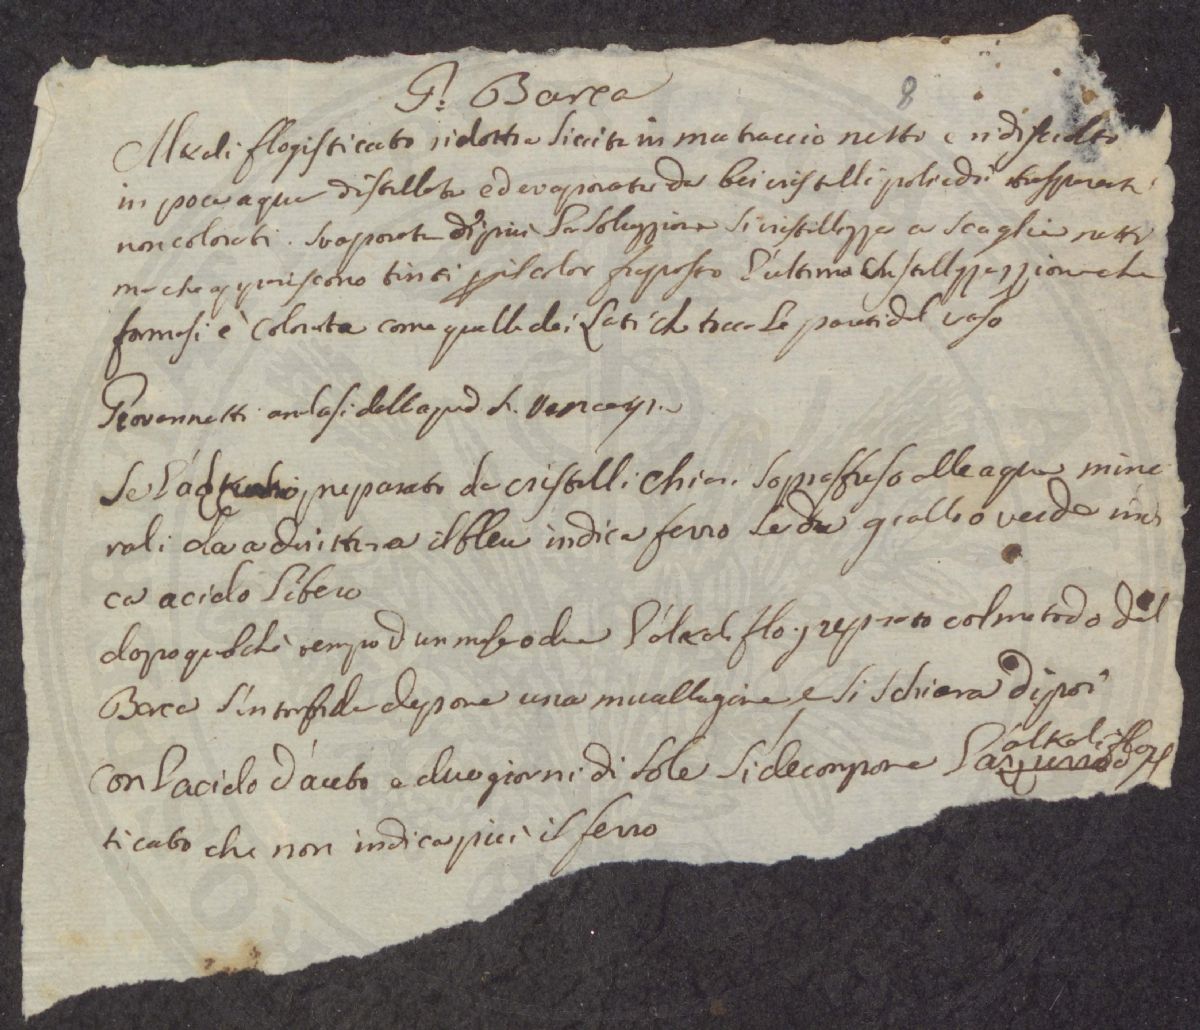 P: Barca 8
Alkali flogisticato ridotto a siccità in matraccio netto e ridisciolto
in poca aqua distillata ed evaporata da bei cristalli poliedri trasparenti
non colorati. Svaporata di più la soluzzione si cristallizza a scaglie nette
ma che appariscono tinti pel color fraposto l'ultima Christallizzazzione che
formasi è colorata come quella dei lati che tocca le pareti del vaso
Giovannetti analasi dell aqua d. S. Vence
Se l'alkali preparato da cristalli chiari sopraffuso alle aque mine
rali da a drittura il bleu indica ferro se da giallo o verde indi
ca acido libero
dopo qualche tempo d'un mese o due l'alkali flo. preparato col metodo del
Barca s'intorbida depone una mucallagine e si schiara di poi
con l'acido d'aceto e due giorni di sole si decompone l'alkali flogis
ticato che non indica più il ferro